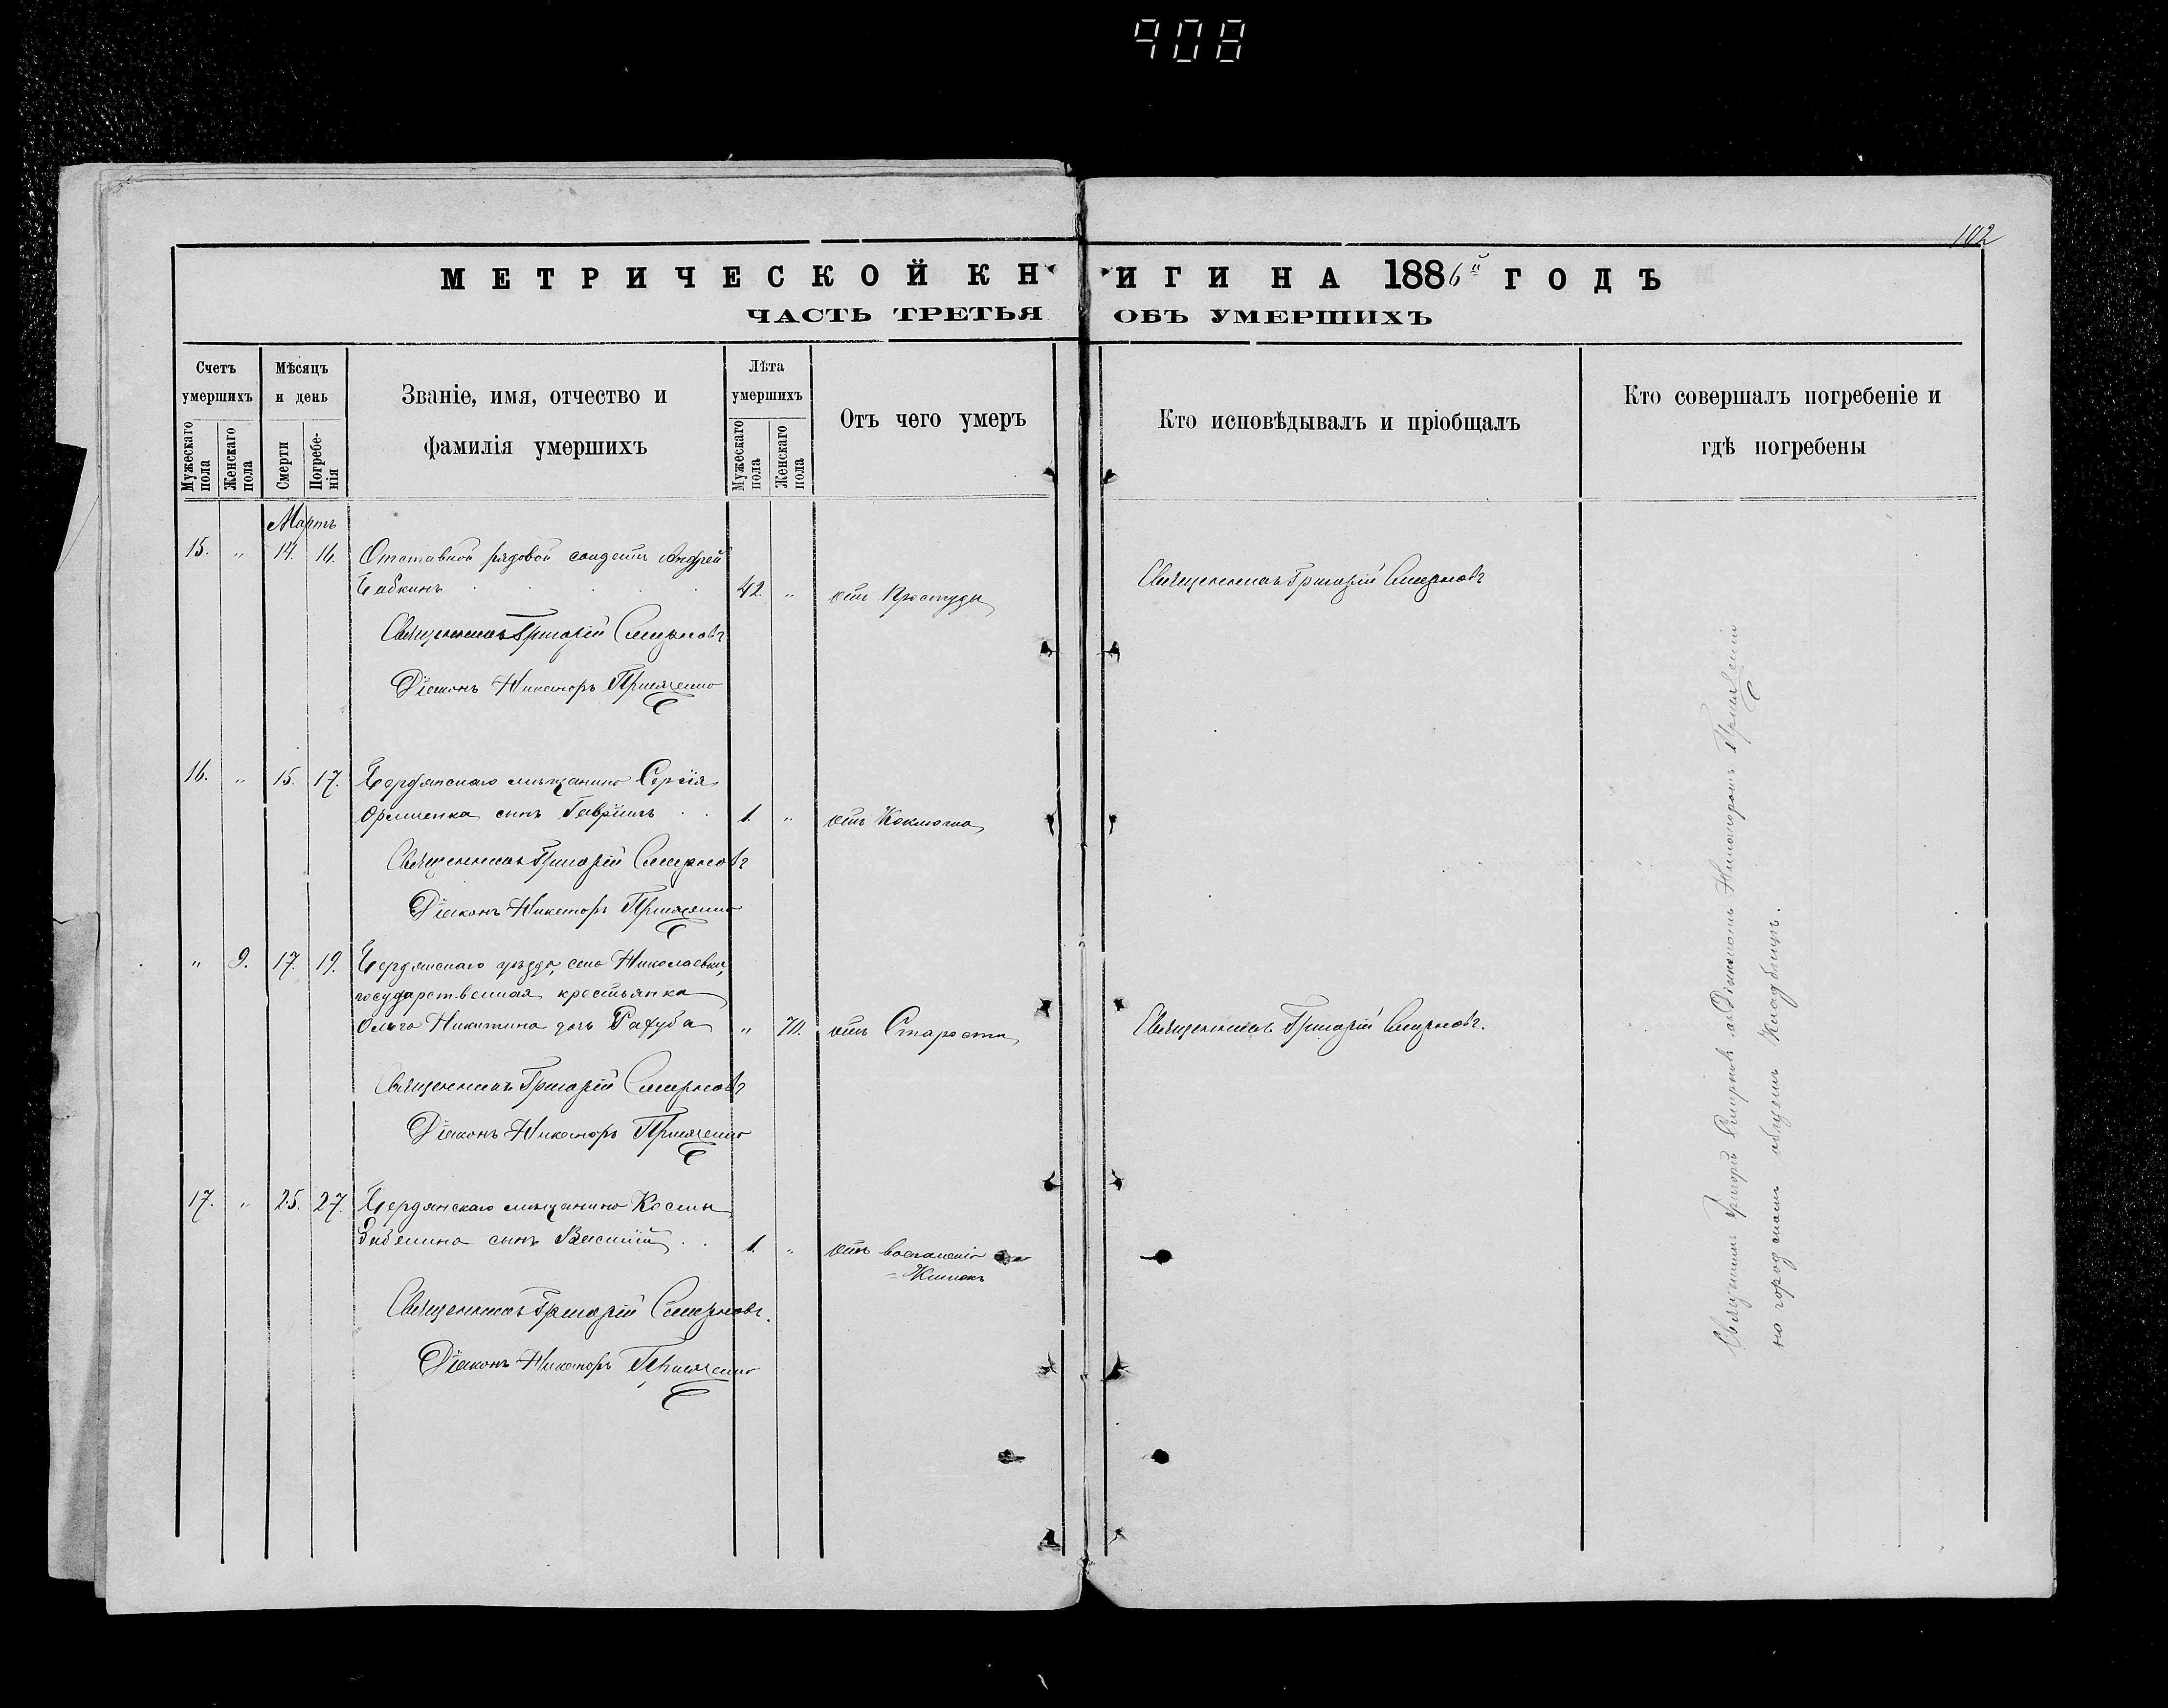 908
102
МЕТРИЧЕСКОЙ КНИГИ НА 1886й ГОДЪ
ЧАСТЬ ТРЕТЬЯ ОБЪ УМЕРШИХЪ
Счетъ умершихъ
Мужескаго пола
Женскаго пола
Мѣсяцъ и день
Смерти
Погребенія
Званіе, имя, отчество и
фамилія умершихъ
Лѣта умершихъ
Мужескаго пола
Женскаго пола
Отъ чего умеръ
Кто исповѣдывалъ и пріобщалъ
Кто совершалъ погребеніе и
гдѣ погребены
Мартъ
15. " 14. 16. Отставной рядовой солдатъ Андрей
Бабкинъ 42 " отъ Простуды Священникъ Григорій Смирновъ
Священникъ Григорій Смирновъ
Діаконъ Никаноръ
16. " 15. 17. Бердянскаго мѣщанина Сергія
сынъ Гавріилъ 1. " отъ Коклюша
Священникъ Григорій Смирновъ
Діаконъ Никаноръ
" 9. 17. 19. Бердянскаго уѣзда, села Николаевки,
государственная крестьянка
Ольга Никитина дочь " 70. отъ Старости Священникъ Григорій Смирновъ.
Священникъ Григорій Смирновъ
Діаконъ Никаноръ
17. " 25. 27. Бердянскаго мѣщанина Космы
сынъ Василій 1. " отъ воспаленія
Кишокъ
Священникъ Григорій Смирновъ.
Діаконъ Никаноръ
Священникъ Григорій Смирновъ съ Діакономъ Никаноромъ
на городскомъ общемъ Кладбищѣ.